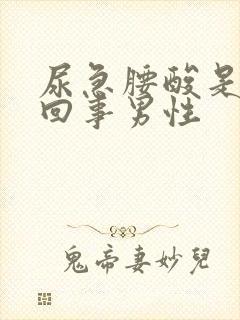 尿急腰酸是
回事男性
鬼帝妻妙兒